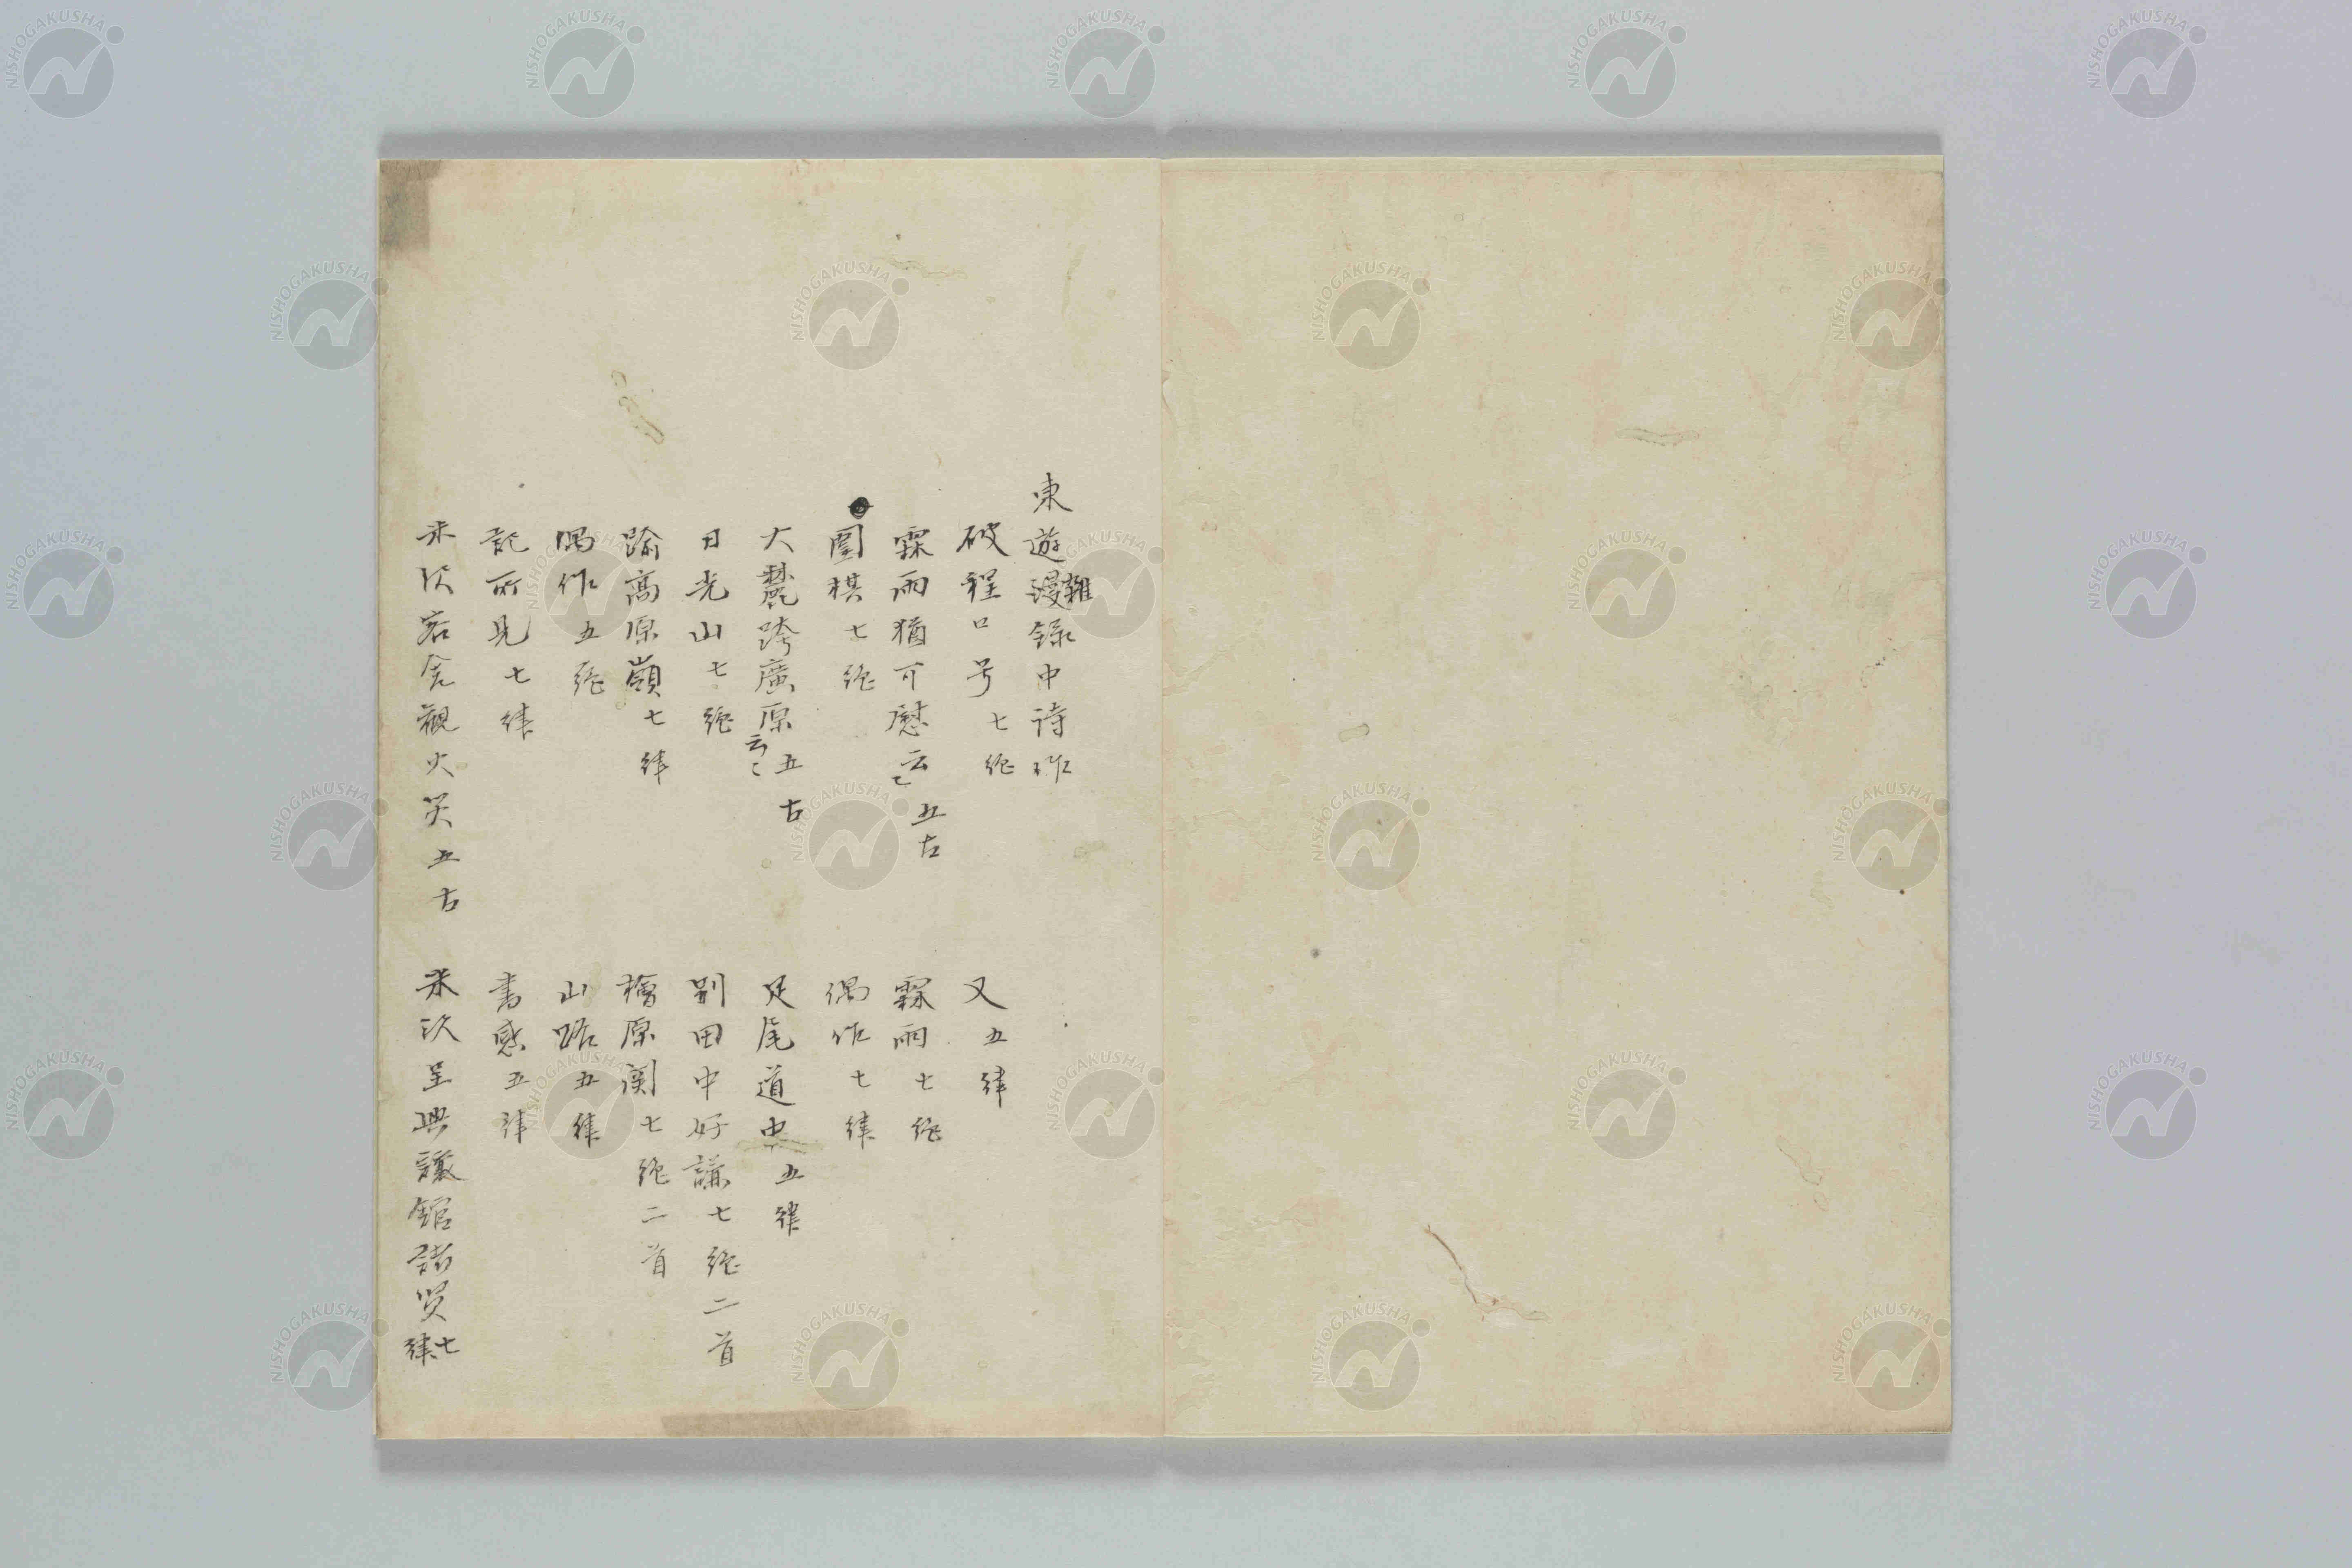 東遊漫録中詩作
雜
破程口号 七絶
又 五律
霖雨猶可慰云〻 五古
霖雨 七絶
圍棋 七絶
偶作 七律
大麓跨廣原云〻 五古
足尾道中 五律
日光山 七絶
別田中好謙 七絶二首
踰高原嶺 七律
檜原関 七絶二首
偶作 五絶
山路 五律
記所見 七律
書感 五律
米沢客舎観火災 五古
米沢呈興讓館諸賢 七律
NISHOGAKUSHA